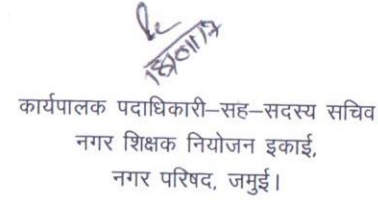 कार्यपालक पदाधिकारी–सह–सदस्य सचिव
नगर शिक्षक नियोजन इकाई,
नगर परिषद, जमुई।